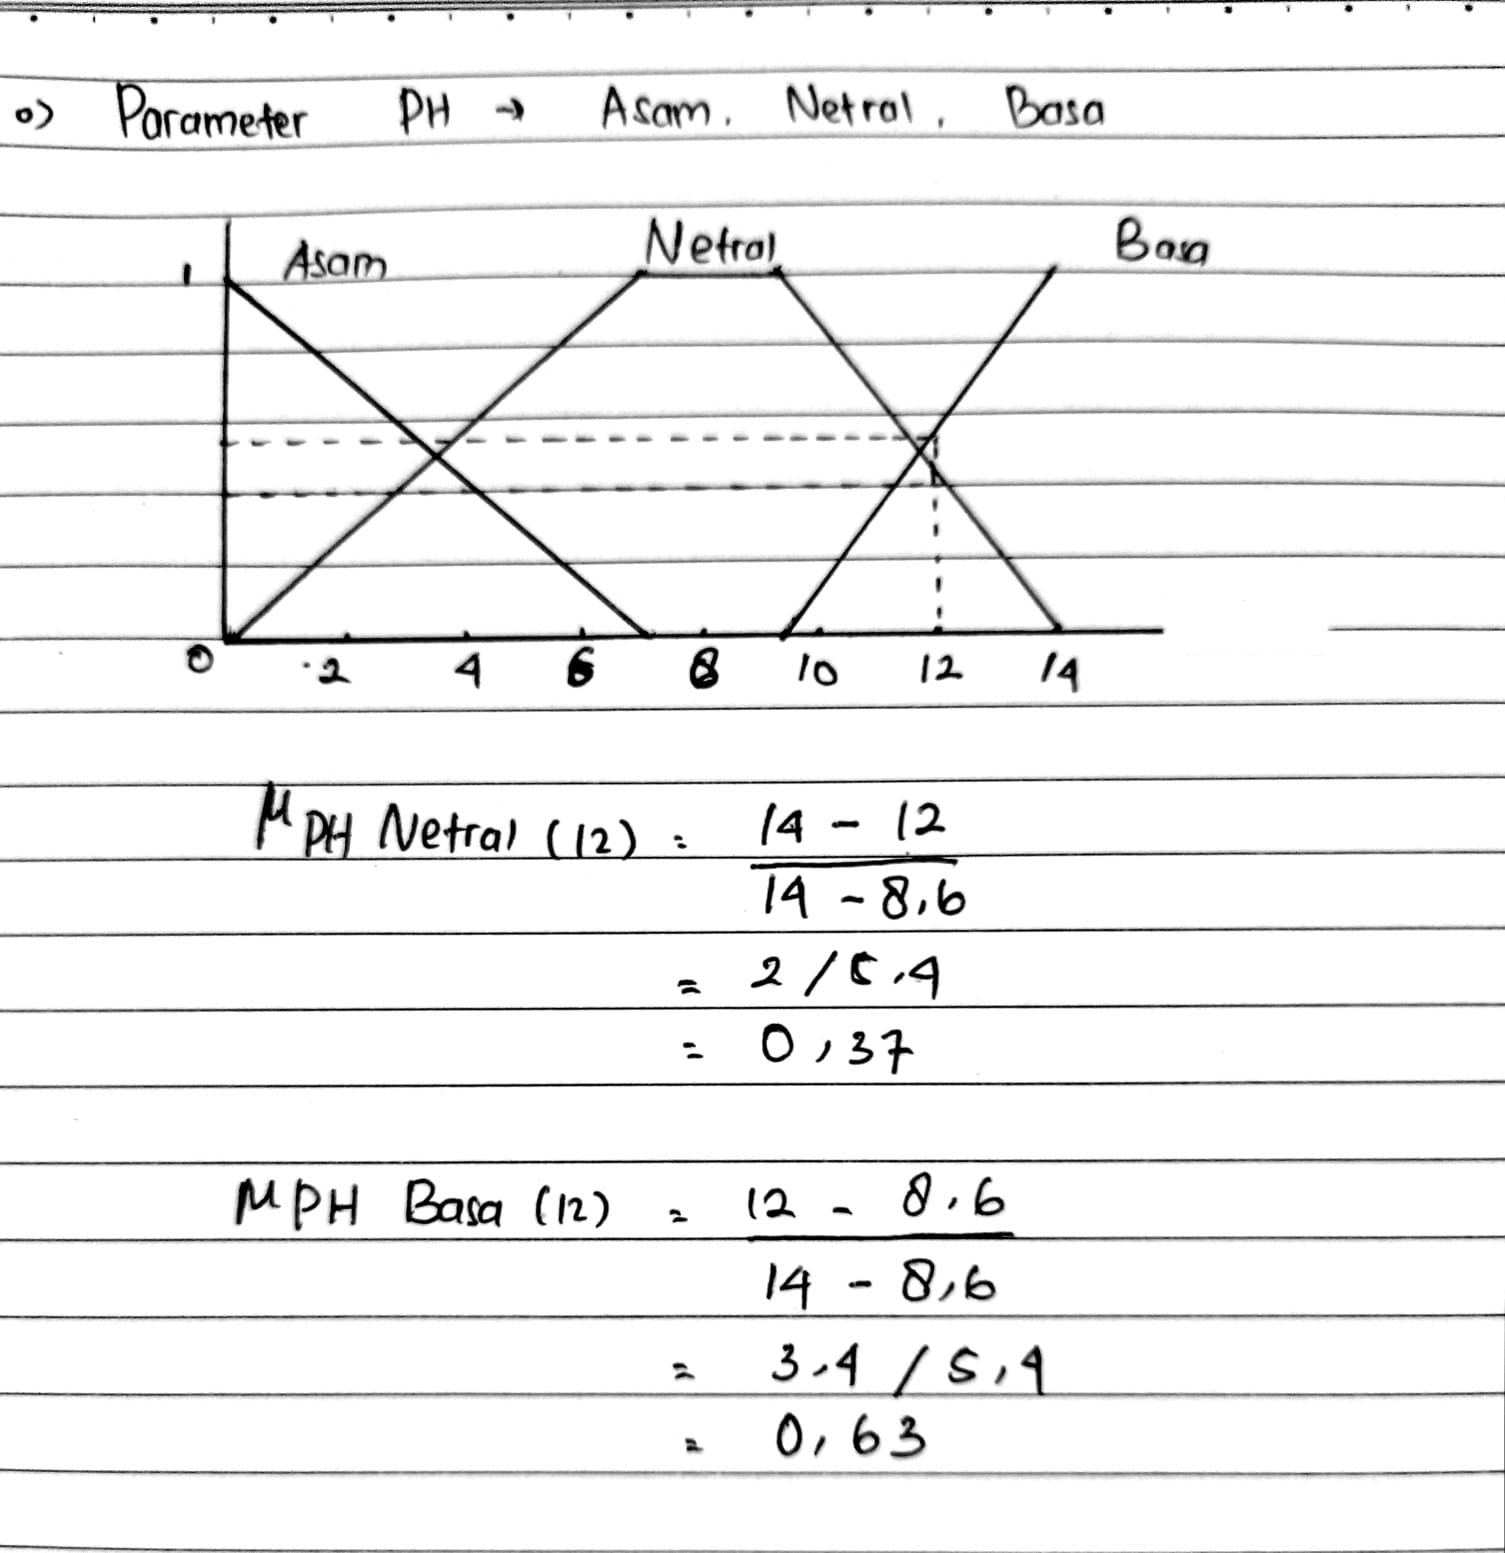 o) Parameter PH → Asam, Netral, Basa
1 Asam Netral Basa
0 2 4 6 8 10 12 14
μ PH Netral (12) = 14 - 12
14 - 8,6
= 2 / 5,4
= 0,37
μ PH Basa (12) = 12 - 8,6
14 - 8,6
= 3,4 / 5,4
= 0,63